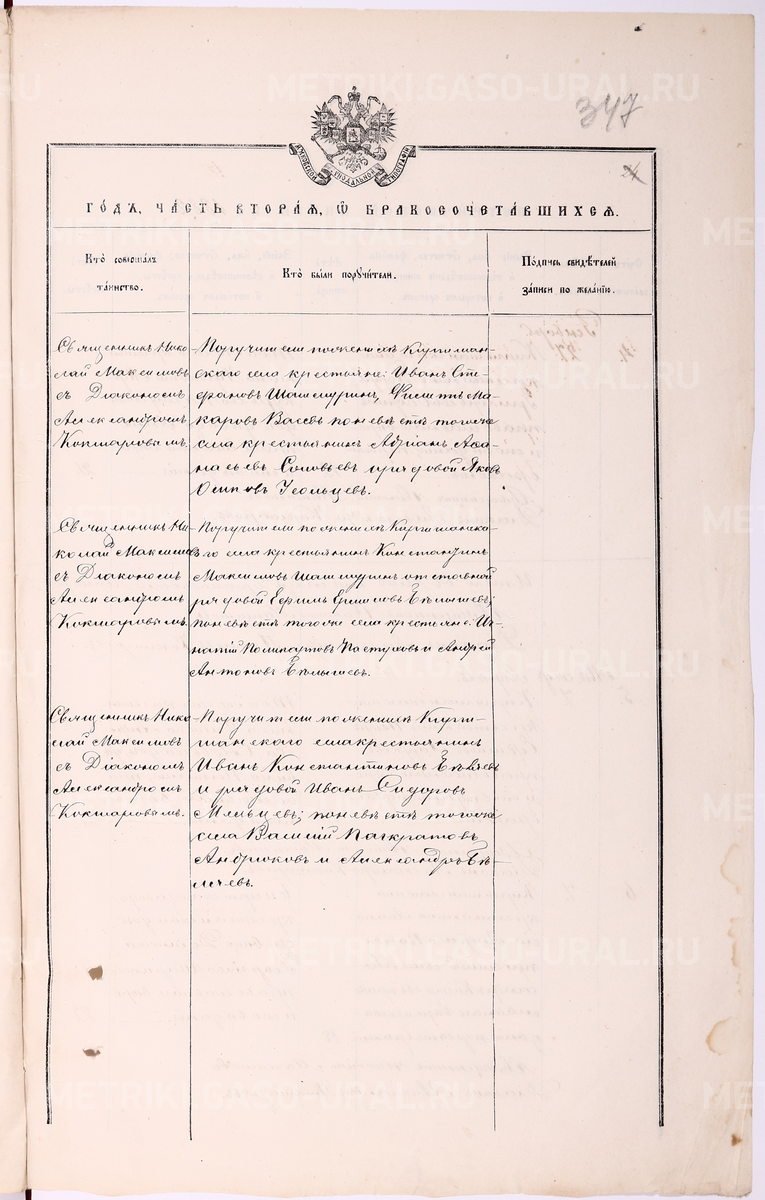 347
24
МОСКОВСКОЙ СѴНОДАЛЬНОЙ ТИПОГРАФІИ
ГО́ДА, ЧА́СТЬ ВТОРА́Я, Ѡ БРАКОСОЧЕТА́ВШИХСЯ.
Кто̀ совершалъ
та́инство.
Кто̀ бы́ли пору́чители.
По́дпись свидѣ́телей
за́писи по жела́нію.
Священникъ Нико
лай Максимовъ
съ Діакономъ
Александромъ
Кокшаровымъ.
Поручители по женихѣ Киргишан-
скаго села крестьяне: Иванъ Сте-
фановъ Шашмуринъ, Филиппъ Ма-
каровъ Васевъ по невѣстѣ тогоже
села крестьянинъ Адріанъ Афа-
насьевъ Соловьевъ и рядовой Яковъ
Осиповъ Усольцевъ.
Священникъ Ни-
колай Максимов
съ Діакономъ
Александромъ
Кокшаровымъ.
Поручители по женихѣ Киргишанска-
го села крестьянинъ Константинъ
Максимовъ Шашмуринъ отставной
рядовой Ефимъ Ефимовъ Бѣлышевъ;
по невѣстѣ тогоже села крестьяне: Иг-
натій Поликарповъ Пастуховъ и Андрей
Антоновъ Бѣлышевъ.
Священникъ Нико
лай Максимовъ
съ Діакономъ
Александромъ
Кокшаровымъ.
Поручители по женихѣ Кирги-
шанскаго села крестьянинъ
Иванъ Константиновъ Бѣляевъ
и рядовой Иванъ Сидоровъ
Мяльцевъ; по невѣстѣ тогоже
села Василій Панкратовъ
Андрюковъ и Александръ Бѣ-
личевъ.
METRIKI.GASO-URAL.RU